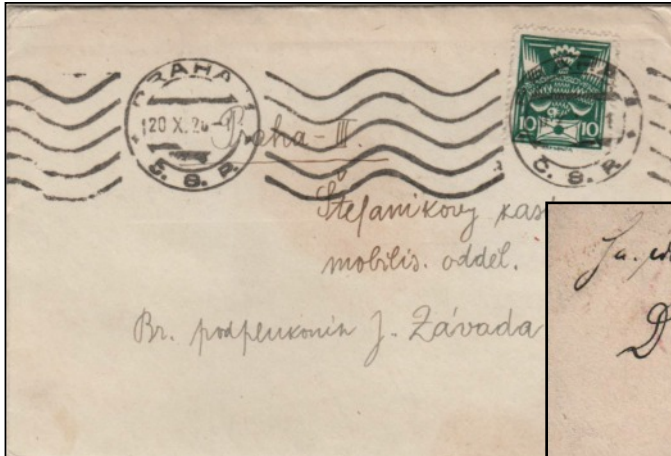 PRAHA
20 X. 2
Č. S. P.
10 10
Č. S. P.
Praha-III.
Štefanikovy kas
mobilis. odděl.
Br. podplukovník J. Závada
D